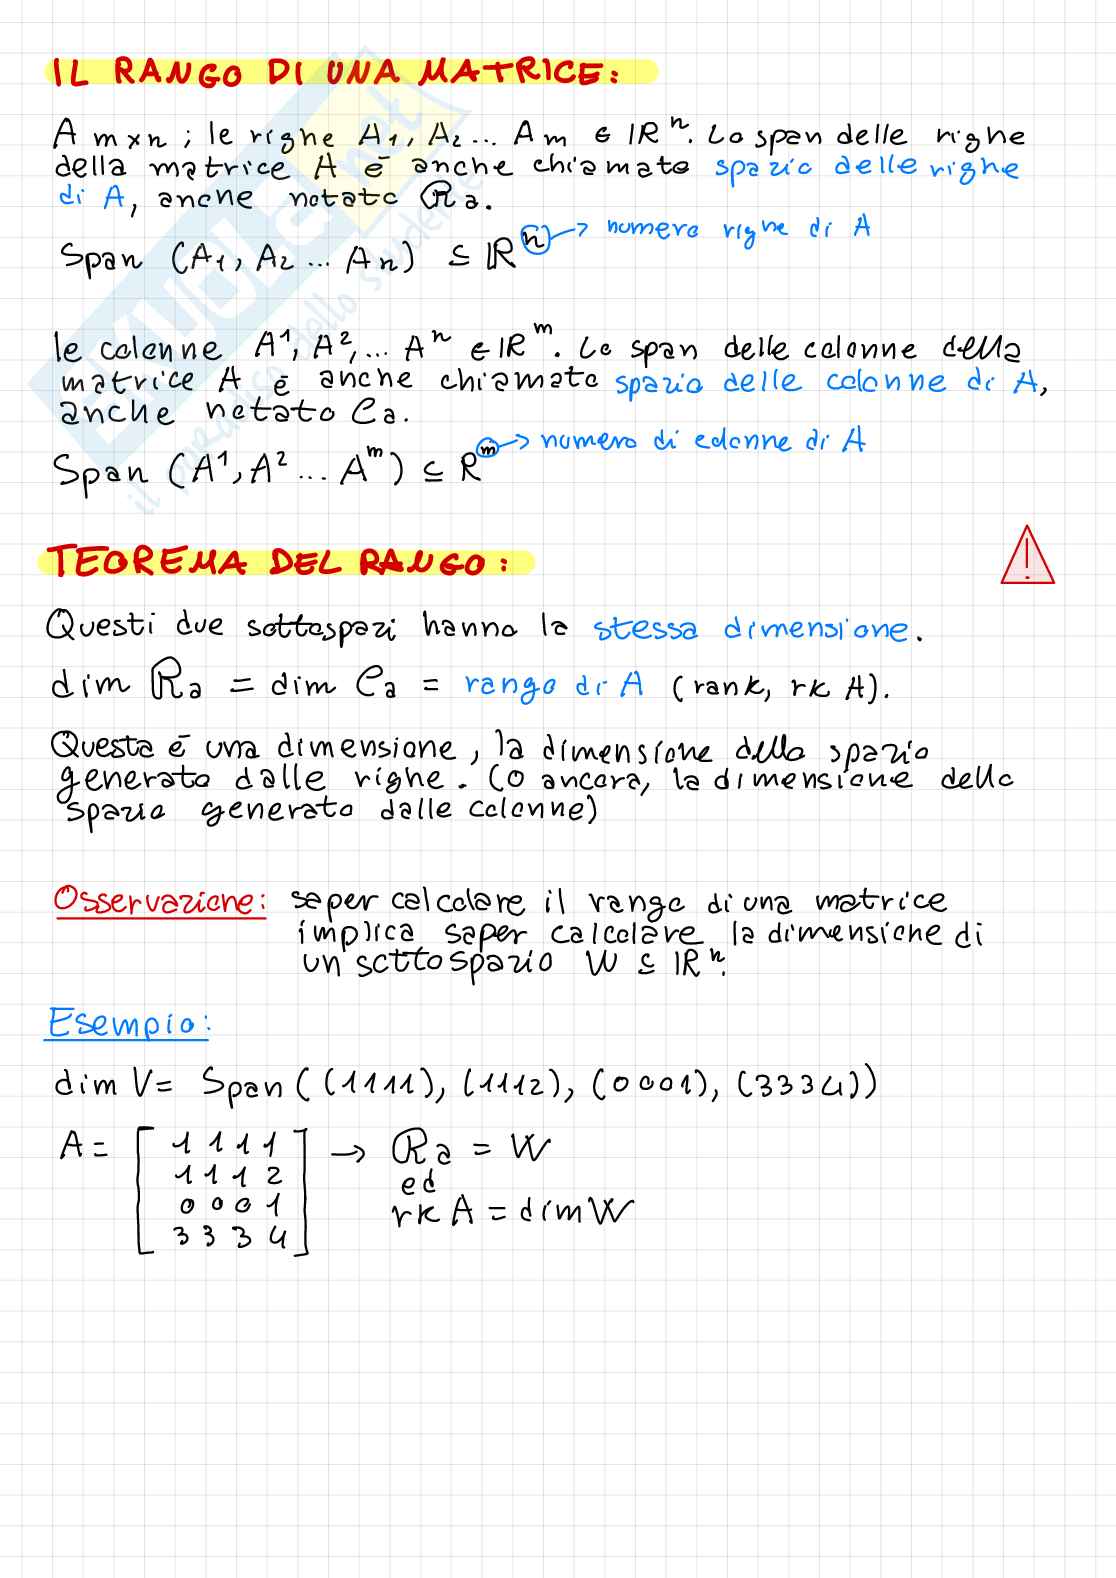 IL RANGO DI UNA MATRICE:
A m×n ; le righe A₁, A₂ ... Am ∈ ℝⁿ. Lo span delle righe
della matrice A è anche chiamato spazio delle righe
di A, anche notato Ra.
Span (A₁, A₂ ... An) ⊆ ℝⁿ → numero righe di A
le colonne A¹, A², ... Aⁿ ∈ ℝᵐ. Lo span delle colonne della
matrice A è anche chiamato spazio delle colonne di A,
anche notato Ca.
Span (A¹, A² ... Aᵐ) ⊆ Rᵐ → numero di colonne di A
TEOREMA DEL RANGO:
Questi due sottospazi hanno la stessa dimensione.
dim Ra = dim Ca = rango di A (rank, rk A).
Questa è una dimensione, la dimensione dello spazio
generato dalle righe. (o ancora, la dimensione dello
spazio generato dalle colonne)
Osservazione: saper calcolare il rango di una matrice
implica saper calcolare la dimensione di
un sottospazio W ⊆ ℝⁿ.
Esempio:
dim V = Span ((1111), (1112), (0001), (3334))
A = [ 1 1 1 1 → Ra = W
1 1 1 2 ed
0 0 0 1 rk A = dim W
3 3 3 4 ]
SKUOLA.net
il paradiso dello studente